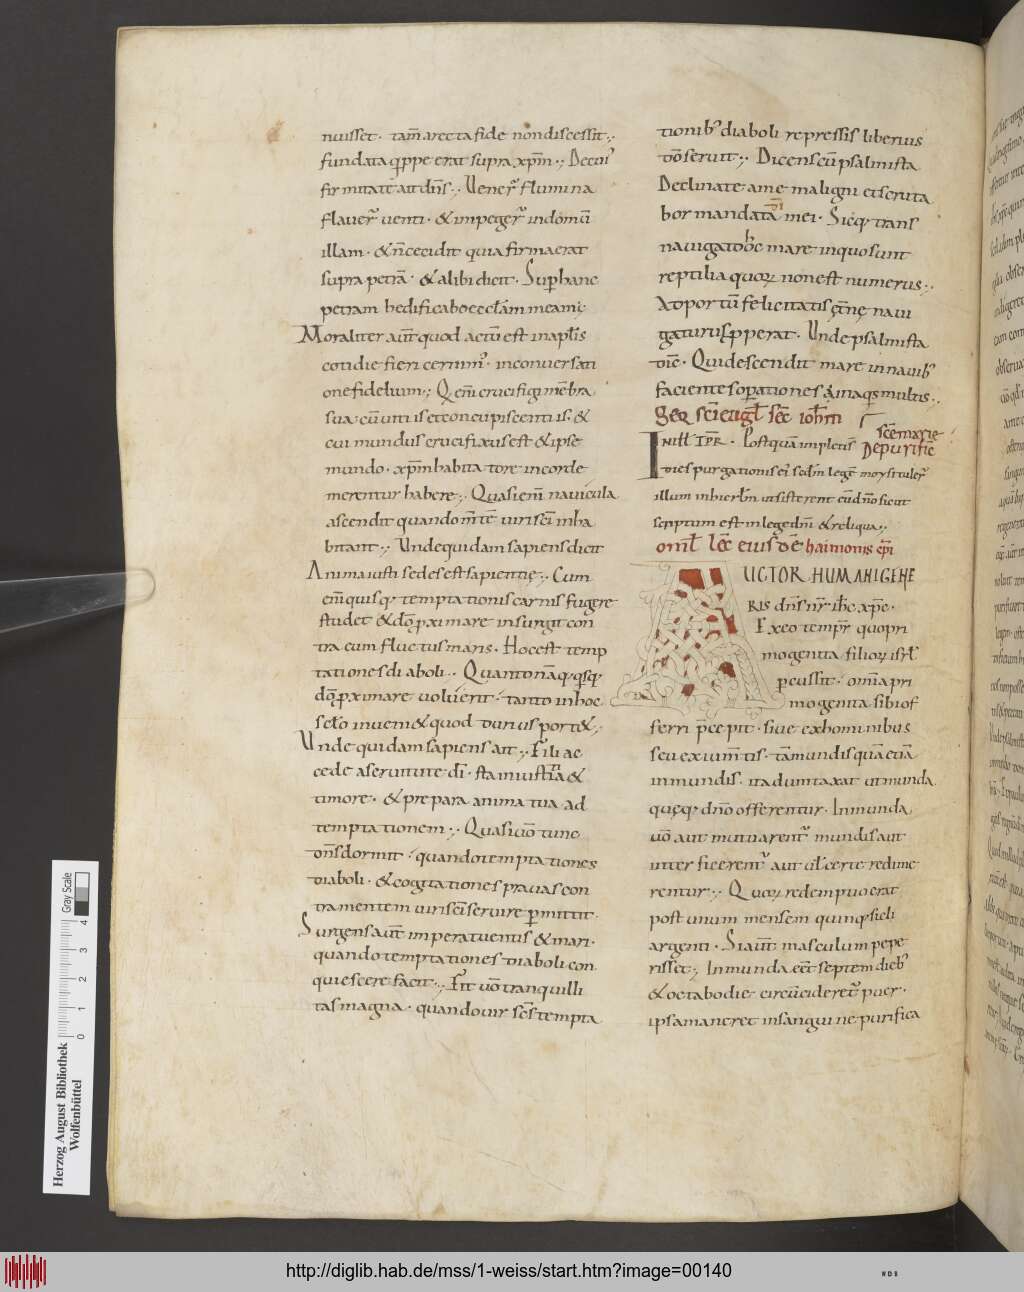 nuisset · tam̄ a recta fide non discessit ·,
fundata q̣ppe erat supra xp̄m ·; De cui'
firmitate ait dn̄s ·; Uener̄ flumina
flauer̄ uenti · & impeger̄ in domū
illam · & n̄ cecidit quia firma erat
supra petrā · & alibi dicit · Sup̄ hanc
petram hedificabo eccl̄am meam ·,
Moraliter aūt quod actū est in apl̄is
cotidie fieri cernim' · in conuersati
one fidelium ·; Qui em̄ crucifigit mēbra
sua cū uitiis et concupiscentiis · &
cui mundus crucifixus est & ipse
mundo · xp̄m habitatore in corde
merentur habere ·; Quasi em̄ nauicula
ascendit quando m̄te uiri sc̄i inha
bitant ·; Unde quidam sapiens dicit
Anima iusti sedes est sapientię ·; Cum
em̄ quisq; temptationis carnis fugere
studet & dō p̱ximare insurgit con
tra eum fluctus maris · Hoc est temp
tationes diaboli · Quanto naq; q̇sq;
dō p̱ximare uoluerit · tanto in hoc
sc̄lo inueni& quod durius port& ·,
Unde quidam sapiens ait ·; Fili ac
cede a seruitute dī · sta in iustitia &
timore · & prepara anima tua ad
temptationem ·; Quasi uō tunc
dn̄s dormit · quando temptationes
diaboli · & cogitationes prauas con
tra mentem uiri sc̄i seruire p̱mittit ·
Surgens aūt imperat uentis & mari ·
quando temptationes diaboli con
quiescere facit ·; Fit uō tranquilli
tas magna · quando uir sc̄s tempta
tionib; diaboli repressis liberius
dō seruit ·; Dicens cū psalmista
Declinate a me maligni et scruta
bor mandata dī mei · Sicq; trans
nauigat hoc mare in quo sunt
reptilia quoꝝ non est numerus ·,
Ad portū felicitatis ęt̄nę naui
gaturus p̱perat · Unde psalmista
dic̄ · Qui descendit mare in nauib;
facientes op̱ationes in aquis multis ·,
Seq̄ sc̄i eugl̄ sēc ioh̄m
sc̄e marie
De purific̄
IN ill̄ TPR̄ · Postquā impleti s̄
dies purgationis ei' scdm̄ legē moysi tuler̄
illum in hierlm̄ ut sisterent eū dn̄o sicut
scriptum est in lege dn̄i & reliqua ·,
omel̄ lēc eiusdē haimonis ep̄i
AUCTOR HUMANI GENE
RIS dn̄s nr̄ ih̄c xp̄c ·
Ex eo temp̱r quo pri
mogenita filioꝝ isrl̄
p̱cussit · om̄ia pri
mogenita sibi of
ferri p̄cepit · siue ex hominibus
seu ex iumtis · tā mundis quā etiā
inmundis · ita dumtaxat ut munda
quęq; dn̄o offerentur · Inmunda
uō aut mutuarent̄ mundis aut
interficerent̄ aut ul̄ certe redime
rentur ·; Quoꝝ redemptio erat
post unum mensem quinq; sicli
argenti · Si aūt masculum pepe
risset ·, Inmunda eēt septem dieb;
& octabo die circūcideret̄ puer ·
ipsa maneret in sanguine purifica
Herzog August Bibliothek
Wolfenbüttel
Gray Scale
0 1 2 3 4
http://diglib.hab.de/mss/1-weiss/start.htm?image=00140